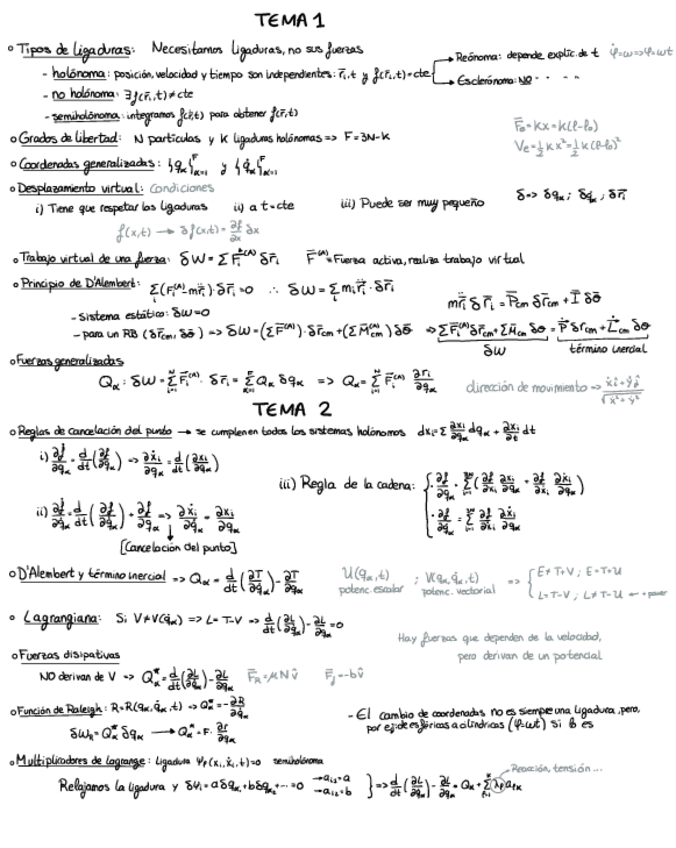 TEMA 1
◦ Tipos de ligaduras: Necesitamos ligaduras, no sus fuerzas
- holónoma: posición, velocidad y tiempo son independientes: r̄ᵢ,t y f(r̄ᵢ,t)=cte
→ Reónoma: depende explíc. de t φ̇=ω=>φ=ωt
→ Esclerónoma: NO " " "
- no holónoma: ∃f(r̄ᵢ,t)≠cte
- semiholónoma: integramos f(ṙ,t) para obtener f(r̄,t)
◦ Grados de libertad: N partículas y K ligaduras holónomas => F=3N-K
F̄ₑ=kx=k(l-l₀)
Vₑ=½kx²=½k(l-l₀)²
◦ Coordenadas generalizadas: {qα}ᶠα=1 y {q̇α}ᶠα=1
◦ Desplazamiento virtual: Condiciones
i) Tiene que respetar las ligaduras ii) a t=cte iii) Puede ser muy pequeño δ=> δqα; δq̇α; δr̄ᵢ
f(x,t) → δf(x,t)=∂f/∂x δx
◦ Trabajo virtual de una fuerza: δW=ΣF̄ᵢ⁽ᴬ⁾δr̄ᵢ F̄⁽ᴬ⁾=Fuerza activa, realiza trabajo virtual
◦ Principio de D'Alembert: Σᵢ(Fᵢ⁽ᴬ⁾-mr̈ᵢ)·δr̄ᵢ=0 ∴ δW=Σᵢmᵢr̈ᵢ·δr̄ᵢ
- Sistema estático: δW=0
- para un RB (δr̄cm, δθ̄) => δW=(ΣF̄⁽ᴬ⁾)·δr̄cm+(ΣM̄cm⁽ᴬ⁾)δθ̄ => ΣF̄ᵢ⁽ᴬ⁾δr̄cm+ΣM̄cm δθ = P̄˙δrcm+L̄˙cm δθ
δW término inercial
◦ Fuerzas generalizadas
Qα: δW=Σᴺᵢ₌₁F̄ᵢ⁽ᴬ⁾·δr̄ᵢ=ΣQα δqα => Qα=Σᴺᵢ₌₁F̄ᵢ⁽ᴬ⁾ ∂r̄ᵢ/∂qα
dirección de movimiento => (ẋî+ẏĵ)/√(ẋ²+ẏ²)
TEMA 2
◦ Reglas de cancelación del punto → se cumplen en todos los sistemas holónomos dxᵢ=Σ ∂xᵢ/∂qα dqα + ∂xᵢ/∂t dt
i) ∂ḟ/∂qα=d/dt(∂f/∂qα) => ∂ẋᵢ/∂qα=d/dt(∂xᵢ/∂qα)
iii) Regla de la cadena:
· ∂f/∂qα=Σ(∂f/∂xᵢ ∂xᵢ/∂qα + ∂f/∂ẋᵢ ∂ẋᵢ/∂qα)
· ∂f/∂q̇α=Σ ∂f/∂ẋᵢ ∂ẋᵢ/∂q̇α
[Cancelación del punto]
◦ D'Alembert y término inercial => Qα=d/dt(∂T/∂q̇α)-∂T/∂qα
U(qα,t) ; V(qα,q̇α,t) => { E≠T+V ; E=T+U
potenc. escalar potenc. vectorial
L=T-V ; L≠T-U
◦ Lagrangiana: Si V≠V(q̇α) => L=T-V => d/dt(∂L/∂q̇α)-∂L/∂qα=0
Hay fuerzas que dependen de la velocidad,
pero derivan de un potencial
◦ Fuerzas disipativas
NO derivan de V => Q*α=d/dt(∂L/∂q̇α)-∂L/∂qα F̄R=μNv̂ F̄f=-bv̄
◦ Función de Raleigh: R=R(qα,q̇α,t) => Q*α=-∂R/∂q̇α
- El cambio de coordenadas no es siempre una ligadura, pero,
por ej: de esféricas a cilíndricas (φ=ωt) sí lo es
δWR=Q*α δqα → Q*α=F·∂r/∂qα
◦ Multiplicadores de lagrange: ligadura Ψₗ(xᵢ,ẋᵢ,t)=0 semiholónoma
Reacción, tensión...
Relajamos la ligadura y δΨᵢ=aδq₁+bδq₂+···=0 } => d/dt(∂L/∂q̇α)-∂L/∂qα=Qα+Σλₗaₗα